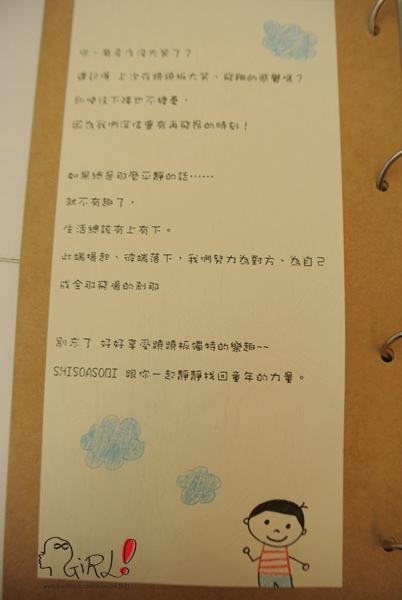 你、有多久沒大笑了？
還記得 上次在蹺蹺板大笑、飛翔的感覺嗎？
即便往下掉也不擔憂，
因為我們深信會有再飛昇的時刻！
如果總是那麼平靜的話……
就不有趣了，
生活總該有上有下。
此端揚起、彼端落下，我們努力為對方、為自己
成全那飛揚的剎那
別忘了 好好享受蹺蹺板獨特的樂趣~~
SHISOASOBI 跟你一起靜靜找回童年的力量。
GiRL!